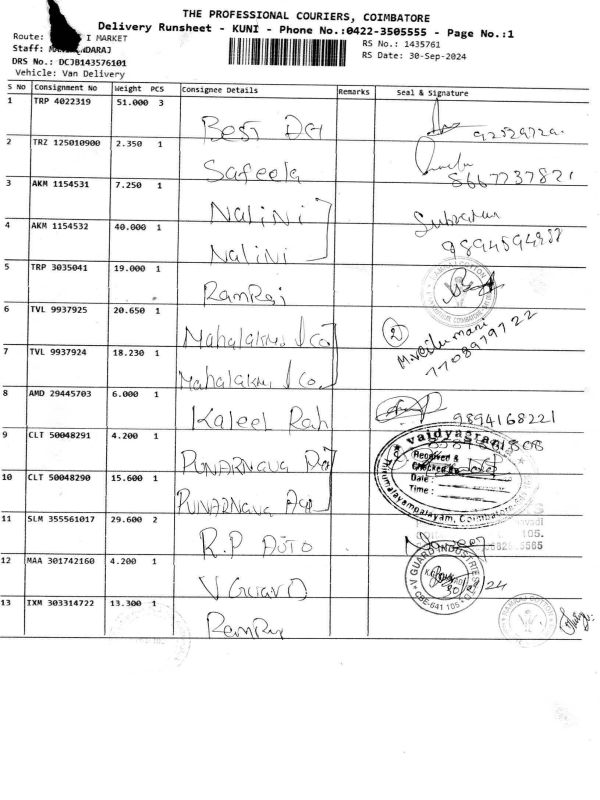 THE PROFESSIONAL COURIERS, COIMBATORE
Delivery Runsheet - KUNI - Phone No.:0422-3505555 - Page No.:1
Route: I MARKET
RS No.: 1435761
Staff: NDARAJ
RS Date: 30-Sep-2024
DRS No.: DCJB143576101
Vehicle: Van Delivery
S No Consignment No Weight PCS Consignee Details Remarks Seal & Signature
1 TRP 4022319 51.000 3 Best
2 TRZ 125010900 2.350 1 Safeela 8667737821
3 AKM 1154531 7.250 1 Nalini
4 AKM 1154532 40.000 1 Nalini
5 TRP 3035041 19.000 1 RamRaj
6 TVL 9937925 20.650 1 Mahalakshmi & Co. 2
7 TVL 9937924 18.230 1 Mahalakshmi & Co. 7708979722
8 AMD 29445703 6.000 1 Kaleel Rah 9894168221
9 CLT 50048291 4.200 1 PUNARNAVA vaidyasrami
Received &
Checked By
10 CLT 50048290 15.600 1 PUNARNAVA Date :
Time :
Thirumalayampalayam, Coimbatore
11 SLM 355561017 29.600 2 R.P AUTO 105.
12 MAA 301742160 4.200 1 V GUARD V GUARD INDUSTRIES
CBE-641 105
13 IXM 303314722 13.300 1 RamRaj RAMRAJ COTTON